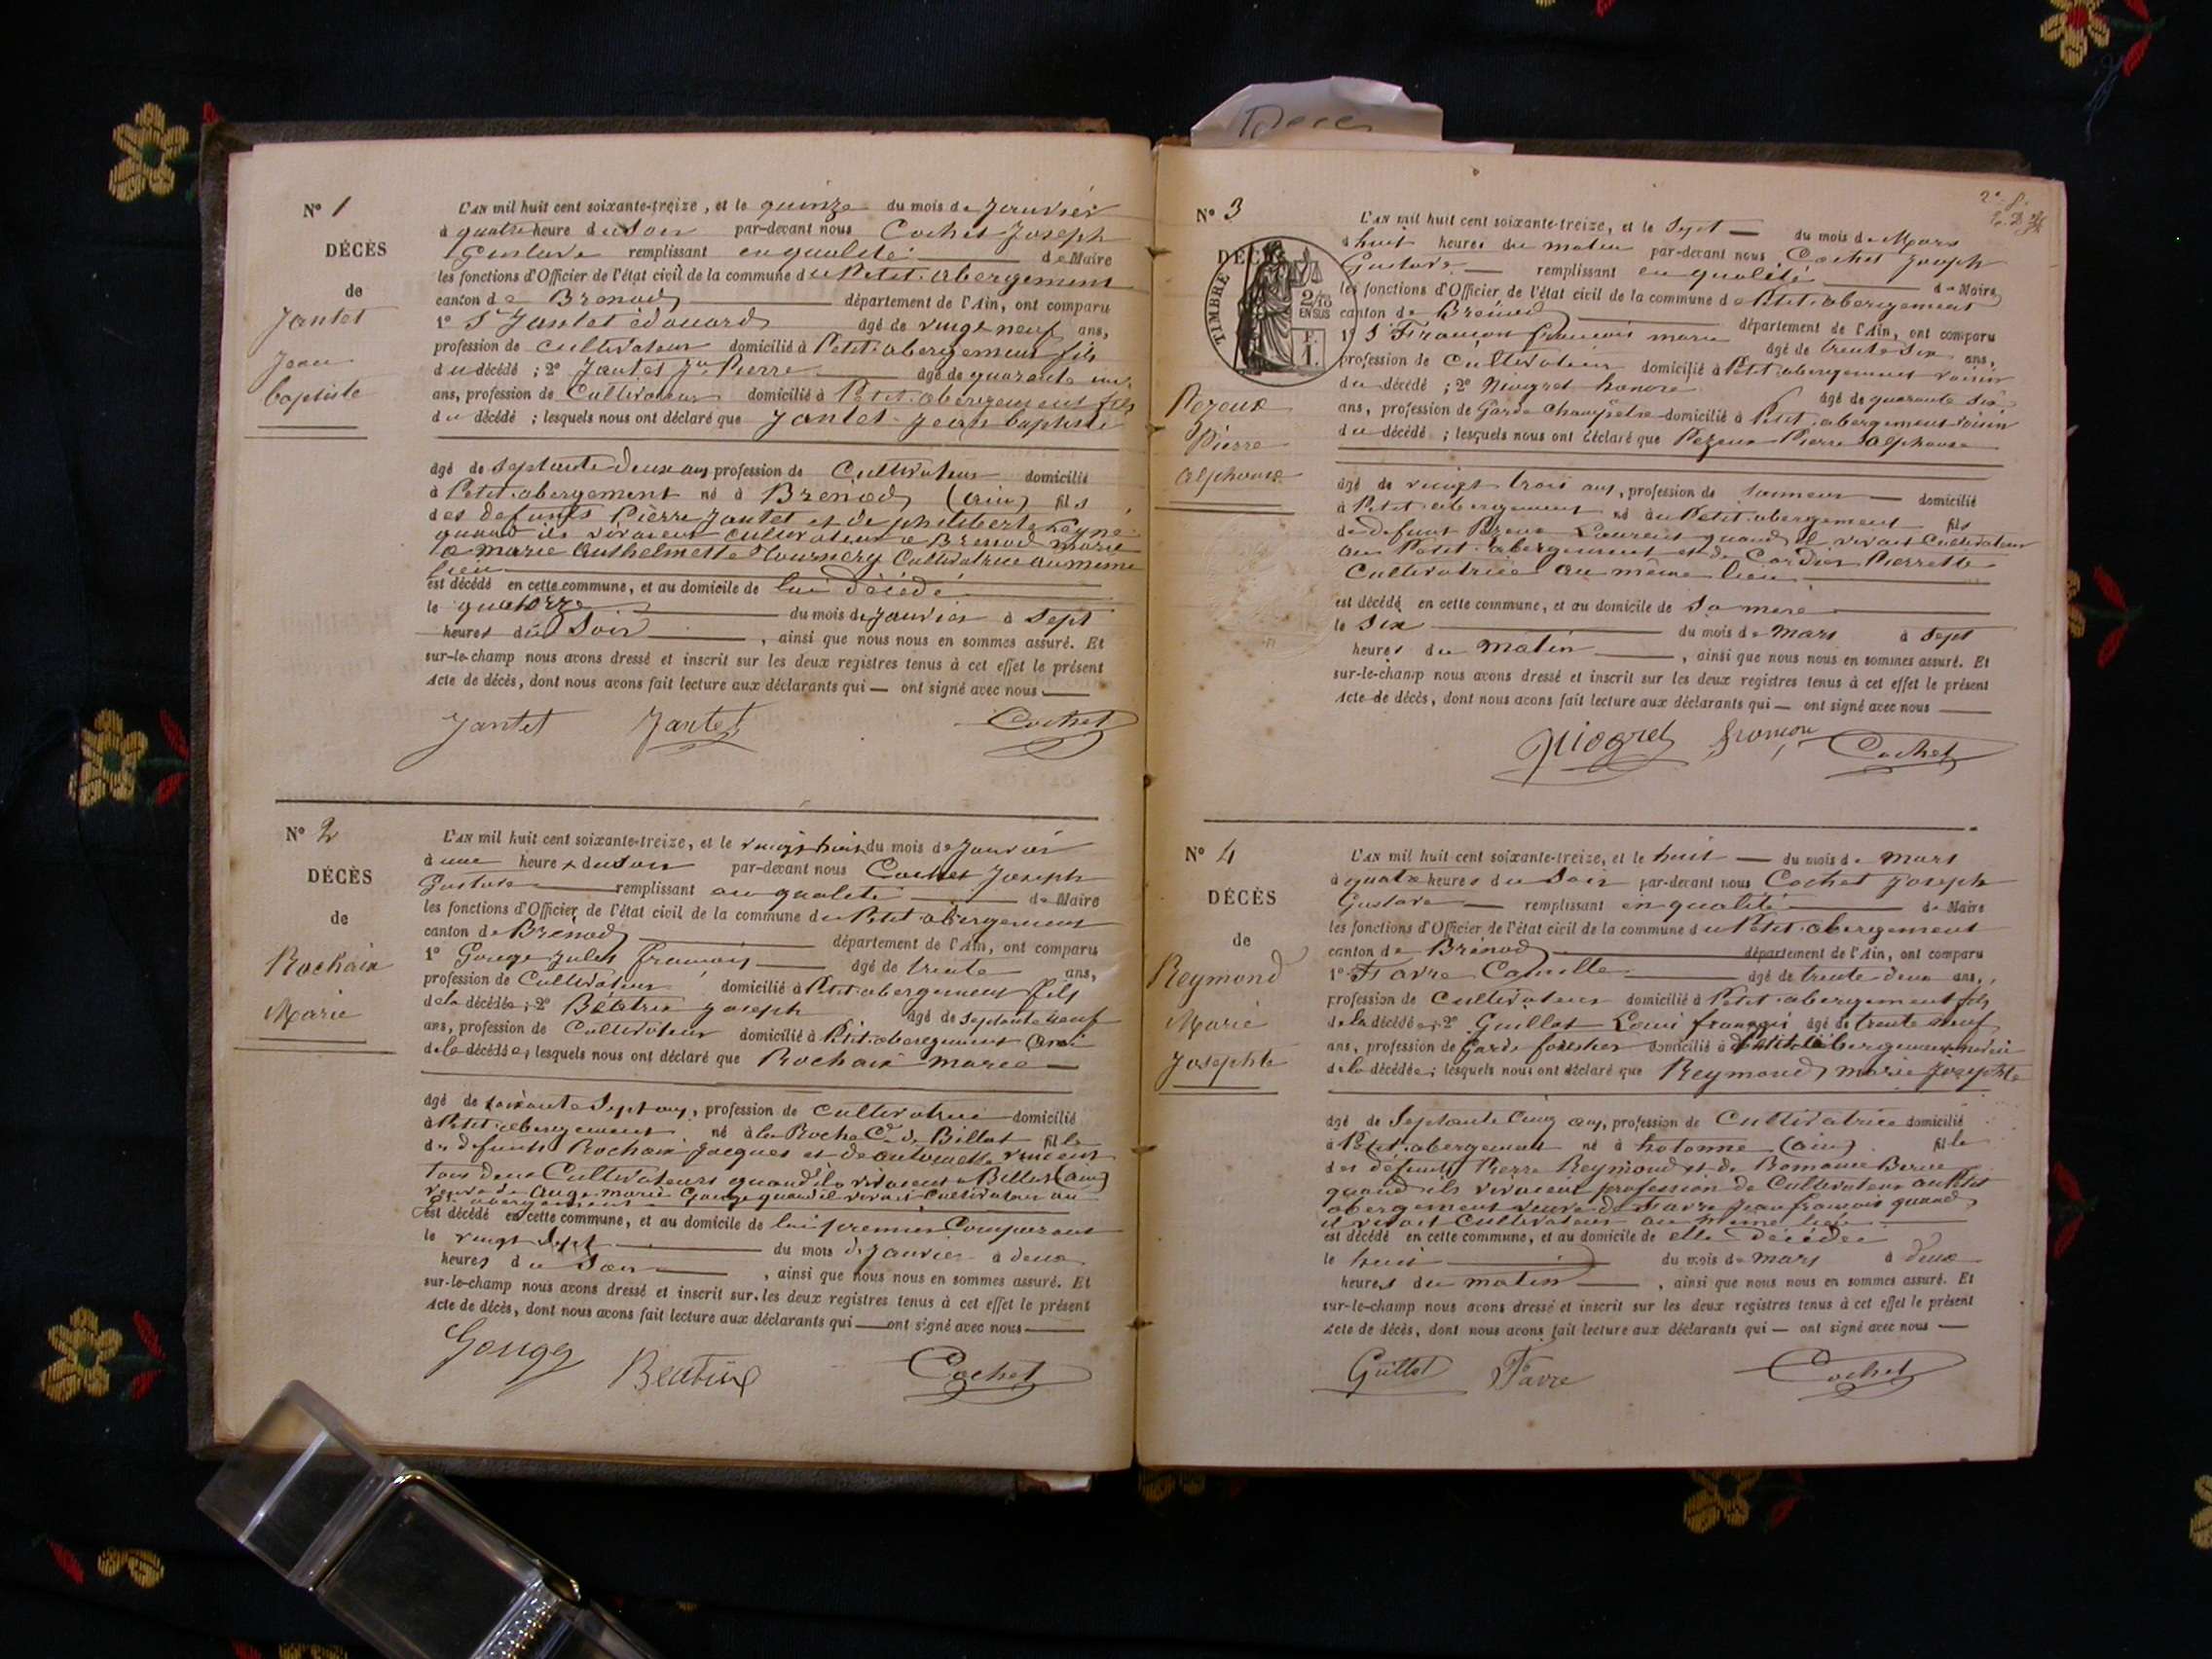 Décès
N° 1
DÉCÈS
de
Jantet
Jean
baptiste
L'AN mil huit cent soixante-treize, et le quinze du mois de Janvier
à quatre heure du Soir par-devant nous Cochet Joseph
Gustave remplissant en qualité de Maire
les fonctions d'Officier de l'état civil de la commune du Petit-abergement
canton de Brenod département de l'Ain, ont comparu
1° S' Jantet édouard âgé de vingt neuf ans,
profession de cultivateur domicilié à Petit-abergement fils
du décédé ; 2° Jantet Jn Pierre âgé de quarante un
ans, profession de Cultivateur domicilié à Petit-abergement fils
du décédé ; lesquels nous ont déclaré que Jantet Jean baptiste
âgé de septante deux ans profession de Cultivateur domicilié
à Petit-abergement né à Brenod (ain) fils
des defunts Pierre Jantet et de philiberte
quand ils vivaient cultivateur a Brenod marié
a marie Anthelmette Tournery Cultivatrice au meme
lieu
est décédé en cette commune, et au domicile de lui décédé
le quatorze du mois de Janvier à Sept
heures du Soir , ainsi que nous nous en sommes assuré. Et
sur-le-champ nous avons dressé et inscrit sur les deux registres tenus à cet effet le présent
Acte de décès, dont nous avons fait lecture aux déclarants qui — ont signé avec nous —
Jantet Jantet Cochet
N° 2
DÉCÈS
de
Rochaix
Marie
L'AN mil huit cent soixante-treize, et le vingt huit du mois de Janvier
à une heure du Soir par-devant nous Cochet Joseph
Gustave remplissant en qualité de Maire
les fonctions d'Officier de l'état civil de la commune du Petit-abergement
canton de Brénod département de l'Ain, ont comparu
1° Gouge Jules françois âgé de trente ans,
profession de Cultivateur domicilié à Petit-abergement fils
de la décédée ; 2° Béatrix Joseph âgé de septante neuf
ans, profession de Cultivateur domicilié à Petit-abergement ami
de la décédée ; lesquels nous ont déclaré que Rochaix marie —
âgé de soixante Sept ans, profession de cultivatrice domicilié
à Petit-abergement né à la Roche Cne de Billiat fille
des defunts Rochaix Jacques et de antoinette vincent
tous deux Cultivateurs quand ils vivaient a Billiat (ain)
veuve de Ange marie Gouge quand il vivait Cultivateur au
Pt abergement
est décédé en cette commune, et au domicile de lui premier Comparant
le vingt Sept du mois de Janvier à deux
heures du Soir , ainsi que nous nous en sommes assuré. Et
sur-le-champ nous avons dressé et inscrit sur les deux registres tenus à cet effet le présent
Acte de décès, dont nous avons fait lecture aux déclarants qui — ont signé avec nous —
Gouge Beatrix Cochet
N° 3
DÉCÈS
TIMBRE
2/10
EN SUS
F.
1.
Pezeux
Pierre
alphonse
L'AN mil huit cent soixante-treize, et le Sept — du mois de Mars
à huit heures du matin par-devant nous Cochet Joseph
Gustave — remplissant en qualité de Maire
les fonctions d'Officier de l'état civil de la commune de Petit-abergement
canton de Brénod département de l'Ain, ont comparu
1° S' Françon francois marie âgé de trente Six ans,
profession de Cultivateur domicilié à Petit-abergement voisin
du décédé ; 2° Niogret honoré âgé de quarante Six
ans, profession de Garde Champêtre domicilié à Petit-abergement voisin
du décédé ; lesquels nous ont déclaré que Pezeux Pierre Alphonse
âgé de vingt trois ans, profession de domicilié
à Petit-abergement né au Petit-abergement fils
de defunt Pezeux Laurent quand il vivait Cultivateur
au Petit-abergement et de Cordier Pierrette
Cultivatrice au même lieu
est décédé en cette commune, et au domicile de Sa mere
le Six du mois de mars à Sept
heures du matin , ainsi que nous nous en sommes assuré. Et
sur-le-champ nous avons dressé et inscrit sur les deux registres tenus à cet effet le présent
Acte de décès, dont nous avons fait lecture aux déclarants qui — ont signé avec nous —
Niogret françon Cochet
N° 4
DÉCÈS
de
Reymond
Marie
Josephte
L'AN mil huit cent soixante-treize, et le huit — du mois de Mars
à quatre heures du Soir par-devant nous Cochet Joseph
Gustave — remplissant en qualité de Maire
les fonctions d'Officier de l'état civil de la commune du Petit-abergement
canton de Brénod département de l'Ain, ont comparu
1° Favre Camille âgé de trente deux ans,
profession de Cultivateur domicilié à Petit-abergement fils
de la décédée ; 2° Guillot Louis françois âgé de trente neuf
ans, profession de Garde forestier domicilié à Petit-abergement
de la décédée ; lesquels nous ont déclaré que Reymond marie Josephte
âgé de Septante Cinq ans, profession de Cultivatrice domicilié
à Petit-abergement né à hotonne (ain) fille
des défunts Pierre Reymond et de Romaine
quand ils vivaient profession de Cultivateur au Petit
abergement veuve de Favre Jean francois quand
il vivait Cultivateur au même lieu
est décédé en cette commune, et au domicile de elle décédée
le huit du mois de mars à deux
heures du matin , ainsi que nous nous en sommes assuré. Et
sur-le-champ nous avons dressé et inscrit sur les deux registres tenus à cet effet le présent
Acte de décès, dont nous avons fait lecture aux déclarants qui — ont signé avec nous —
Guillot Favre Cochet